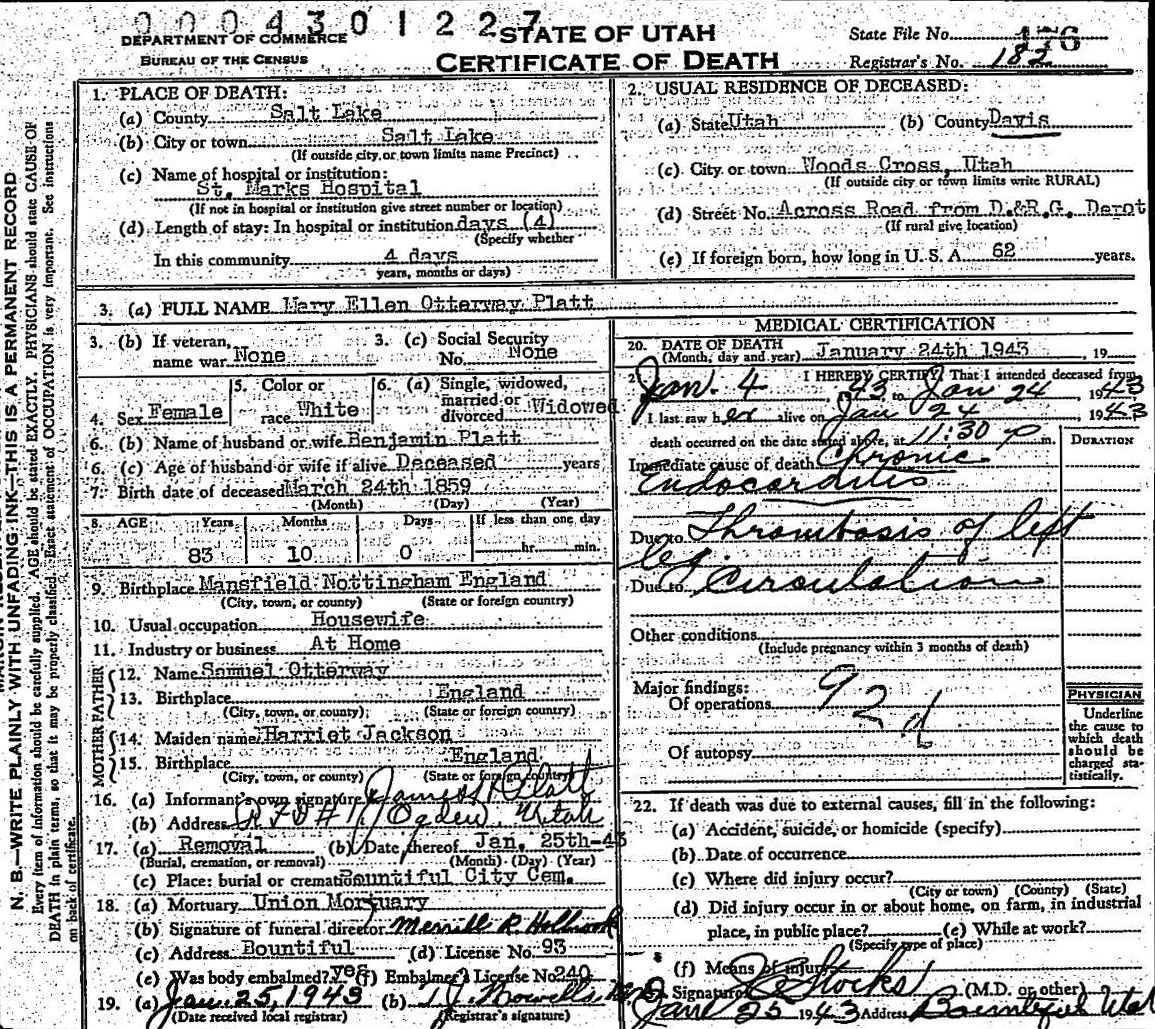 000430 1227
DEPARTMENT OF COMMERCE
BUREAU OF THE CENSUS
STATE OF UTAH
CERTIFICATE OF DEATH
State File No. 176
Registrar's No. 182
N. B.—WRITE PLAINLY WITH UNFADING INK—THIS IS A PERMANENT RECORD
Every item of information should be carefully supplied. AGE should be stated EXACTLY. PHYSICIANS should state CAUSE OF
DEATH in plain terms, so that it may be properly classified. Exact statement of OCCUPATION is very important. See instructions
on back of certificate.
1. PLACE OF DEATH:
(a) County Salt Lake
(b) City or town Salt Lake
(If outside city or town limits name Precinct)
(c) Name of hospital or institution:
St. Marks Hospital
(If not in hospital or institution give street number or location)
(d) Length of stay: In hospital or institution days (4)
(Specify whether
In this community 4 days
years, months or days)
2. USUAL RESIDENCE OF DECEASED:
(a) State Utah (b) County Davis
(c) City or town Woods Cross, Utah
(If outside city or town limits write RURAL)
(d) Street No. Across Road from D.&R.G. Depot
(If rural give location)
(e) If foreign born, how long in U. S. A. 62 years.
3. (a) FULL NAME Mary Ellen Otterway Platt
3. (b) If veteran, name war None
3. (c) Social Security No. None
4. Sex Female
5. Color or race White
6. (a) Single, widowed, married or divorced Widowed
6. (b) Name of husband or wife Benjamin Platt
6. (c) Age of husband or wife if alive Deceased years
7. Birth date of deceased March 24th 1859
(Month) (Day) (Year)
8. AGE Years Months Days If less than one day
83 10 0 hr. min.
9. Birthplace Mansfield Nottingham England
(City, town, or county) (State or foreign country)
10. Usual occupation Housewife
11. Industry or business At Home
FATHER
12. Name Samuel Otterway
13. Birthplace England
(City, town, or county) (State or foreign country)
MOTHER
14. Maiden name Harriet Jackson
15. Birthplace England
(City, town, or county) (State or foreign country)
16. (a) Informant's own signature James H Platt
(b) Address RFD #1, Ogden Utah
17. (a) Removal (b) Date thereof Jan. 25th-43
(Burial, cremation, or removal) (Month) (Day) (Year)
(c) Place: burial or cremation Bountiful City Cem.
18. (a) Mortuary Union Mortuary
(b) Signature of funeral director Merrill R. Holbrook
(c) Address Bountiful (d) License No. 93
(e) Was body embalmed? yes (f) Embalmer's License No. 240
19. (a) Jan. 25, 1943 (b) T. J. Howells
(Date received local registrar) (Registrar's signature)
MEDICAL CERTIFICATION
20. DATE OF DEATH
(Month, day and year) January 24th 1943, 19
2 I HEREBY CERTIFY That I attended deceased from
Jan. 4, 1943 to Jan 24 1943
I last saw her alive on Jan 24 1943
death occurred on the date stated above, at 11:30 P m.
DURATION
Immediate cause of death Chronic
Endocarditis
Due to Thrombosis of left
leg
Due to Circulation
Other conditions
(Include pregnancy within 3 months of death)
Major findings:
Of operations
92d
Of autopsy
PHYSICIAN
Underline
the cause to
which death
should be
charged sta-
tistically.
22. If death was due to external causes, fill in the following:
(a) Accident, suicide, or homicide (specify)
(b) Date of occurrence
(c) Where did injury occur?
(City or town) (County) (State)
(d) Did injury occur in or about home, on farm, in industrial
place, in public place? (e) While at work?
(Specify type of place)
(f) Means of injury
Signature Stocks (M.D. or other)
Jan 25 1943 Address Bountiful Utah